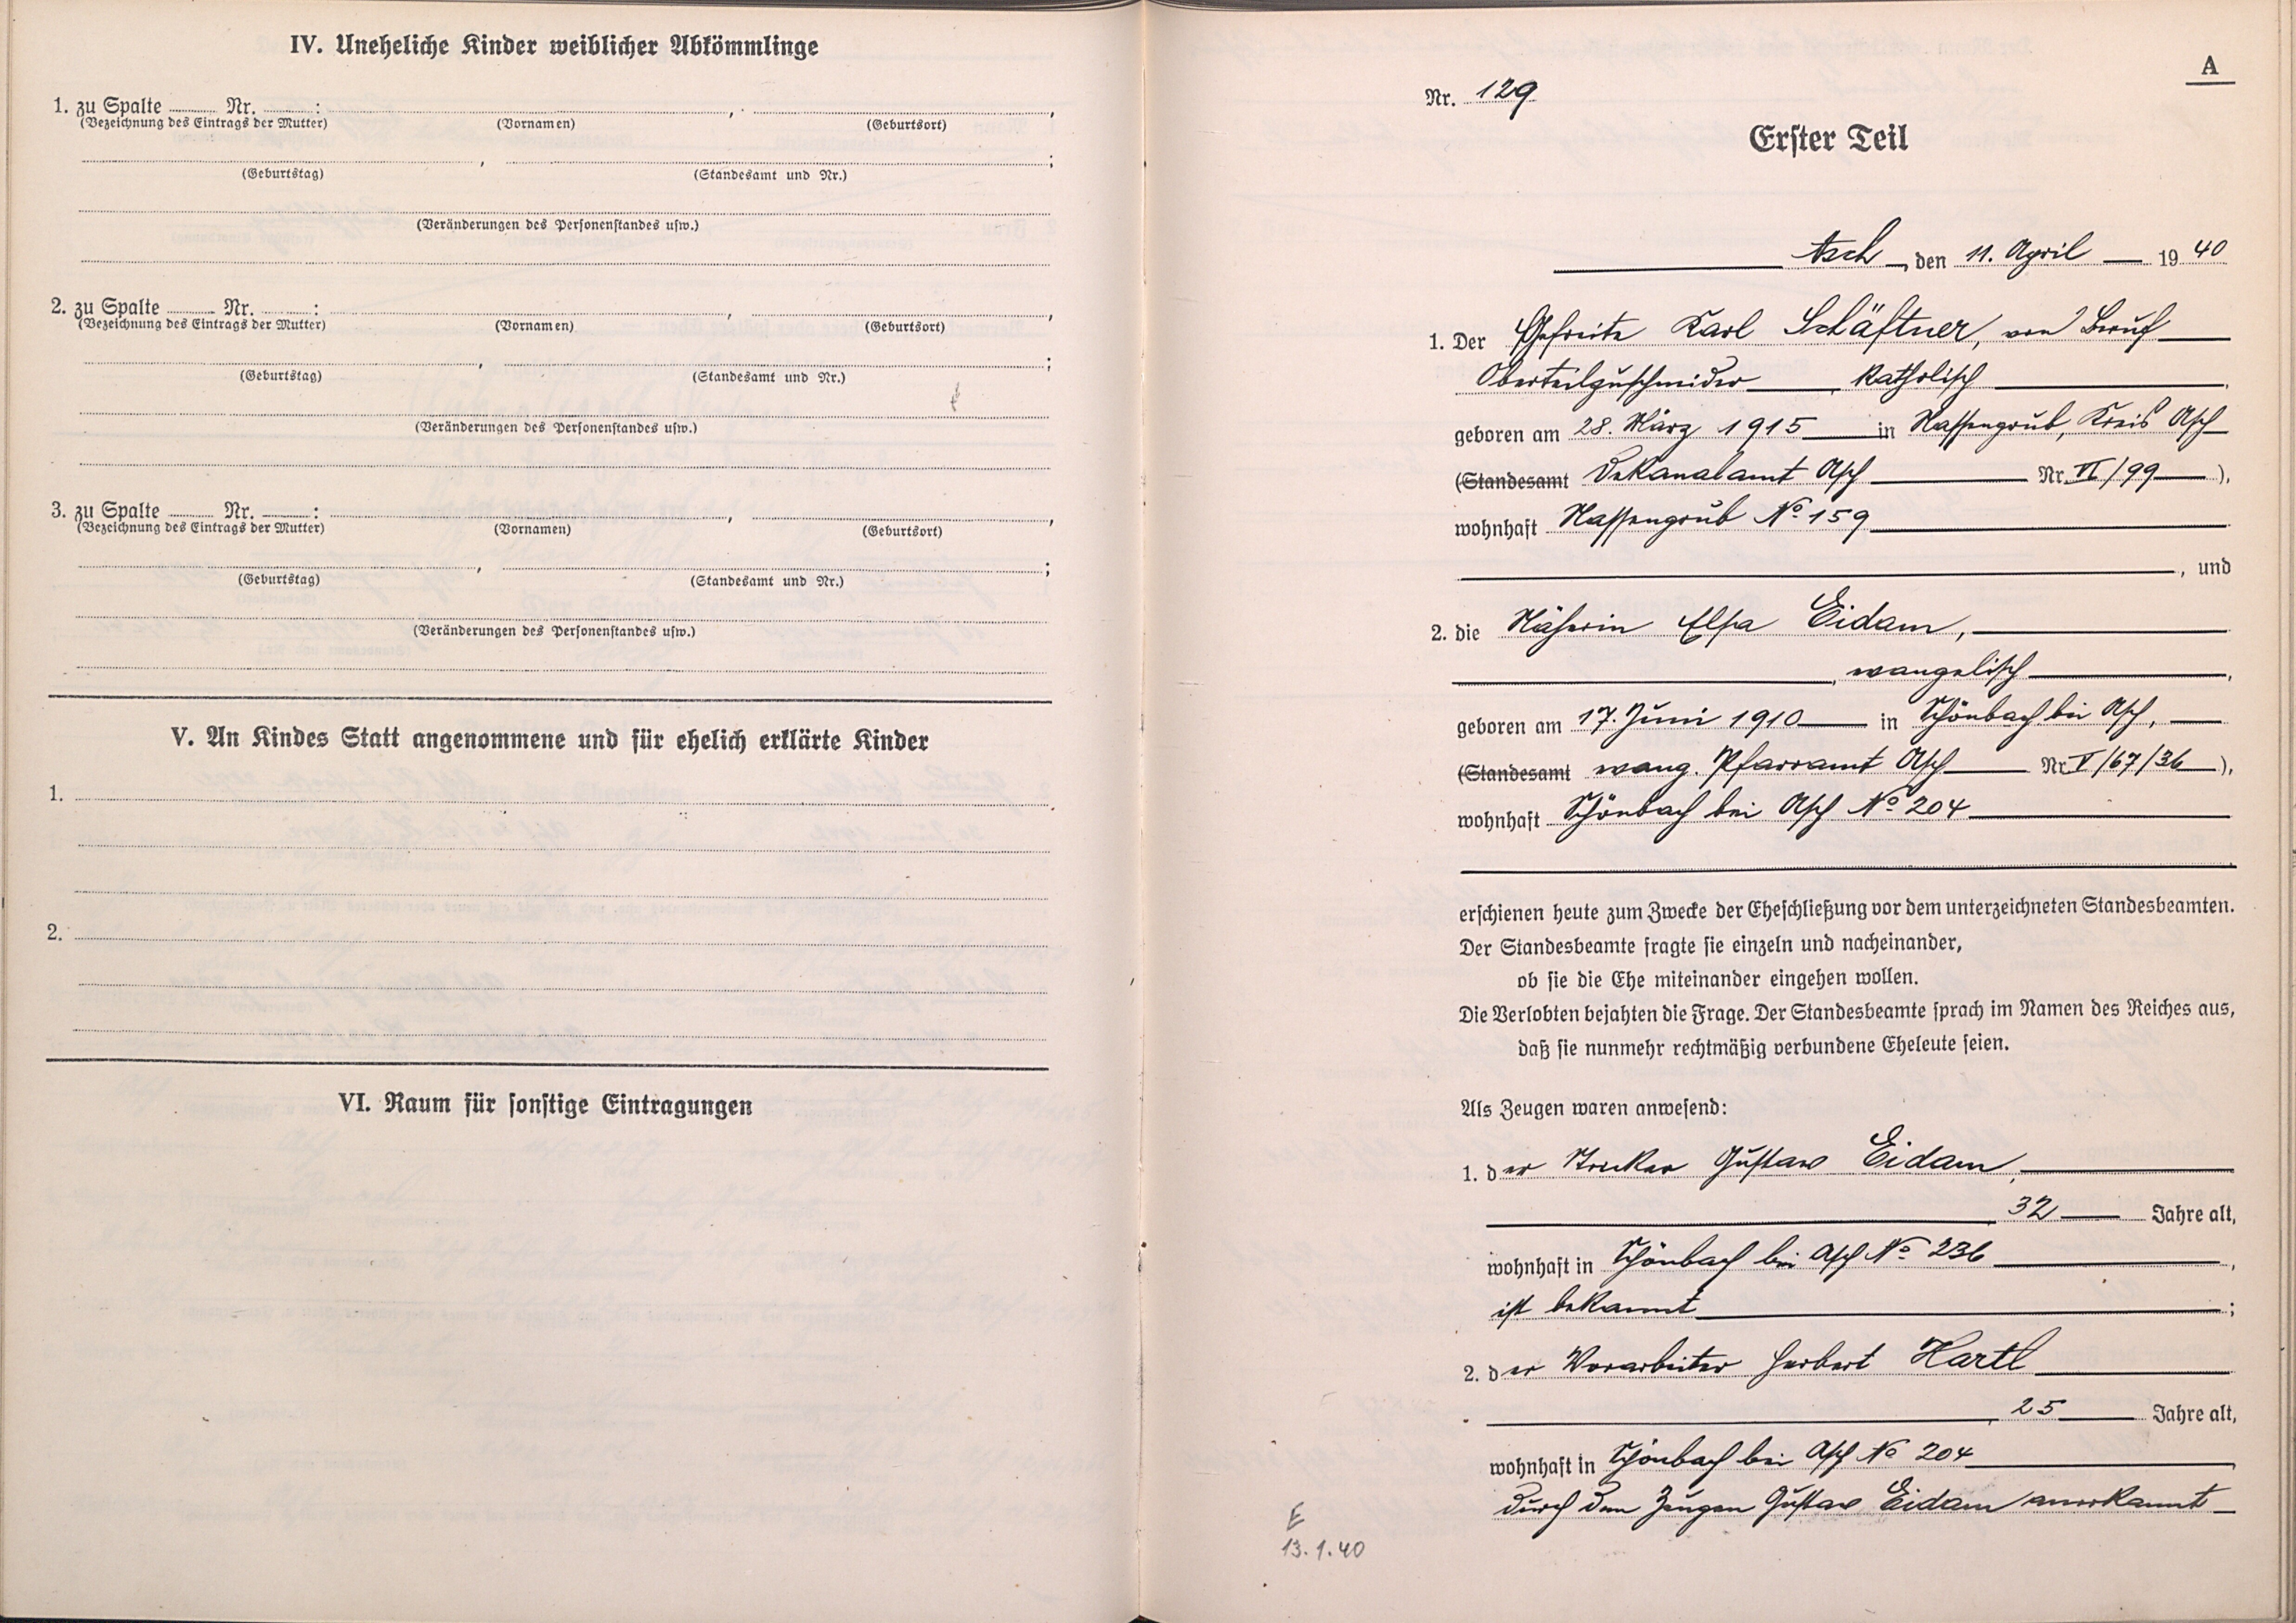 IV. Uneheliche Kinder weiblicher Abkömmlinge
1. zu Spalte Nr. : , ,
(Bezeichnung des Eintrags der Mutter) (Vornamen) (Geburtsort)
, ;
(Geburtstag) (Standesamt und Nr.)
(Veränderungen des Personenstandes usw.)
2. zu Spalte Nr. : , ,
(Bezeichnung des Eintrags der Mutter) (Vornamen) (Geburtsort)
, ;
(Geburtstag) (Standesamt und Nr.)
(Veränderungen des Personenstandes usw.)
3. zu Spalte Nr. : , ,
(Bezeichnung des Eintrags der Mutter) (Vornamen) (Geburtsort)
, ;
(Geburtstag) (Standesamt und Nr.)
(Veränderungen des Personenstandes usw.)
V. An Kindes Statt angenommene und für ehelich erklärte Kinder
1.
2.
VI. Raum für sonstige Eintragungen
A
Nr. 129
Erster Teil
Asch, den 11. April 1940
1. Der Gefreite Karl Schäftner, von Beruf
Oberteilzuschneider, katholisch,
geboren am 28. März 1915 in Nassengrub, Kreis Asch
(Standesamt Dekanalamt Asch Nr. VI/99),
wohnhaft Nassengrub No 159
, und
2. die Näherin Elsa Eidam,
, evangelisch,
geboren am 17. Juni 1910 in Schönbach bei Asch,
(Standesamt evang. Pfarramt Asch Nr. V/67/36),
wohnhaft Schönbach bei Asch No 204
erschienen heute zum Zwecke der Eheschließung vor dem unterzeichneten Standesbeamten.
Der Standesbeamte fragte sie einzeln und nacheinander,
ob sie die Ehe miteinander eingehen wollen.
Die Verlobten bejahten die Frage. Der Standesbeamte sprach im Namen des Reiches aus,
daß sie nunmehr rechtmäßig verbundene Eheleute seien.
Als Zeugen waren anwesend:
1. der Stricker Gustav Eidam,
, 32 Jahre alt,
wohnhaft in Schönbach bei Asch No 236,
ist bekannt;
2. der Vorarbeiter Herbert Hartl
, 25 Jahre alt,
wohnhaft in Schönbach bei Asch No 204,
durch den Zeugen Gustav Eidam anerkannt
E
13.1.40